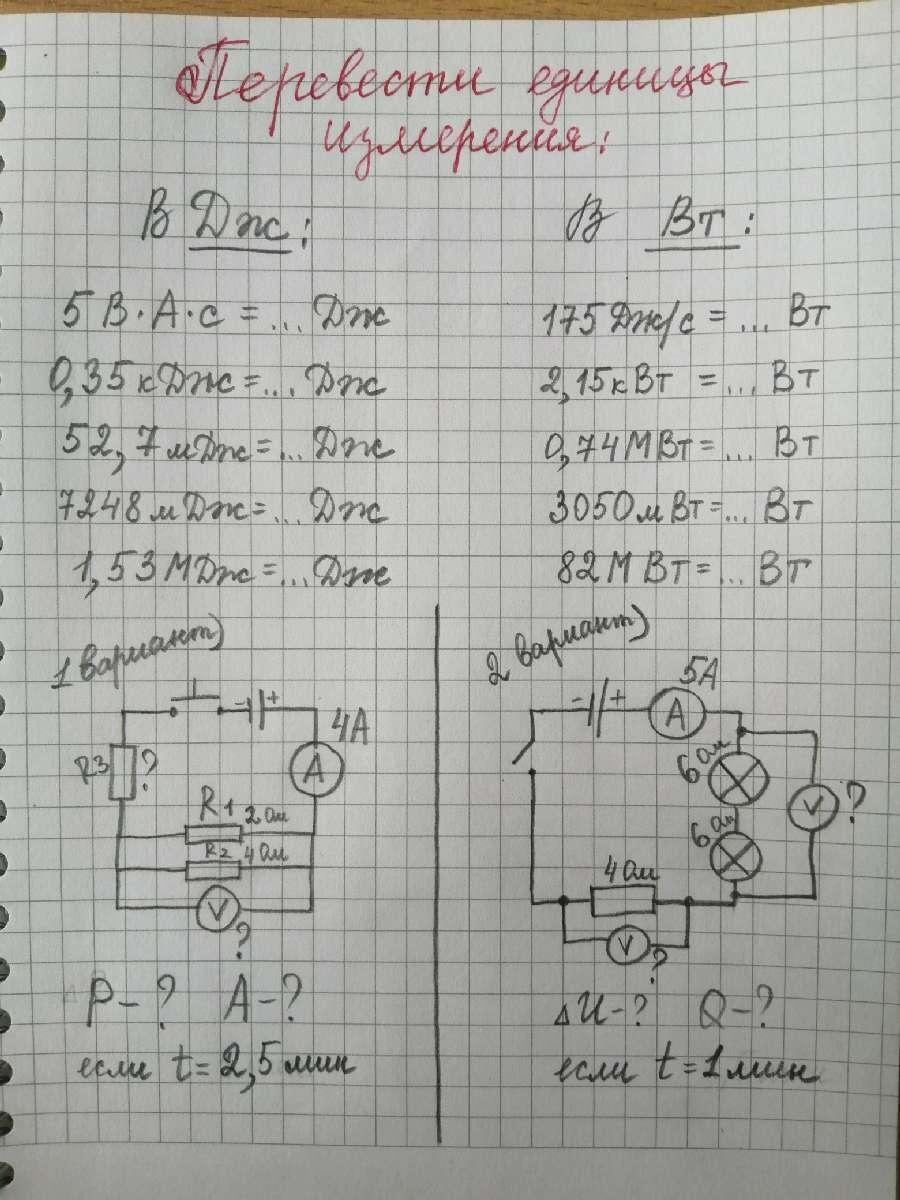 Перевести единицы
измерения:
В Дж:
5 В·А·с = ... Дж
0,35 кДж = ... Дж
52,7 мДж = ... Дж
7248 мДж = ... Дж
1,53 МДж = ... Дж
В Вт:
175 Дж/с = ... Вт
2,15 кВт = ... Вт
0,74 МВт = ... Вт
3050 мВт = ... Вт
82 МВт = ... Вт
1 вариант)
- +
4А
A
R3 ?
R1 2 Ом
R2 4 Ом
V
?
P - ? A - ?
если t = 2,5 мин
2 вариант)
5А
- +
A
6 Ом
V ?
6 Ом
4 Ом
V
?
ΔU - ? Q - ?
если t = 1 мин